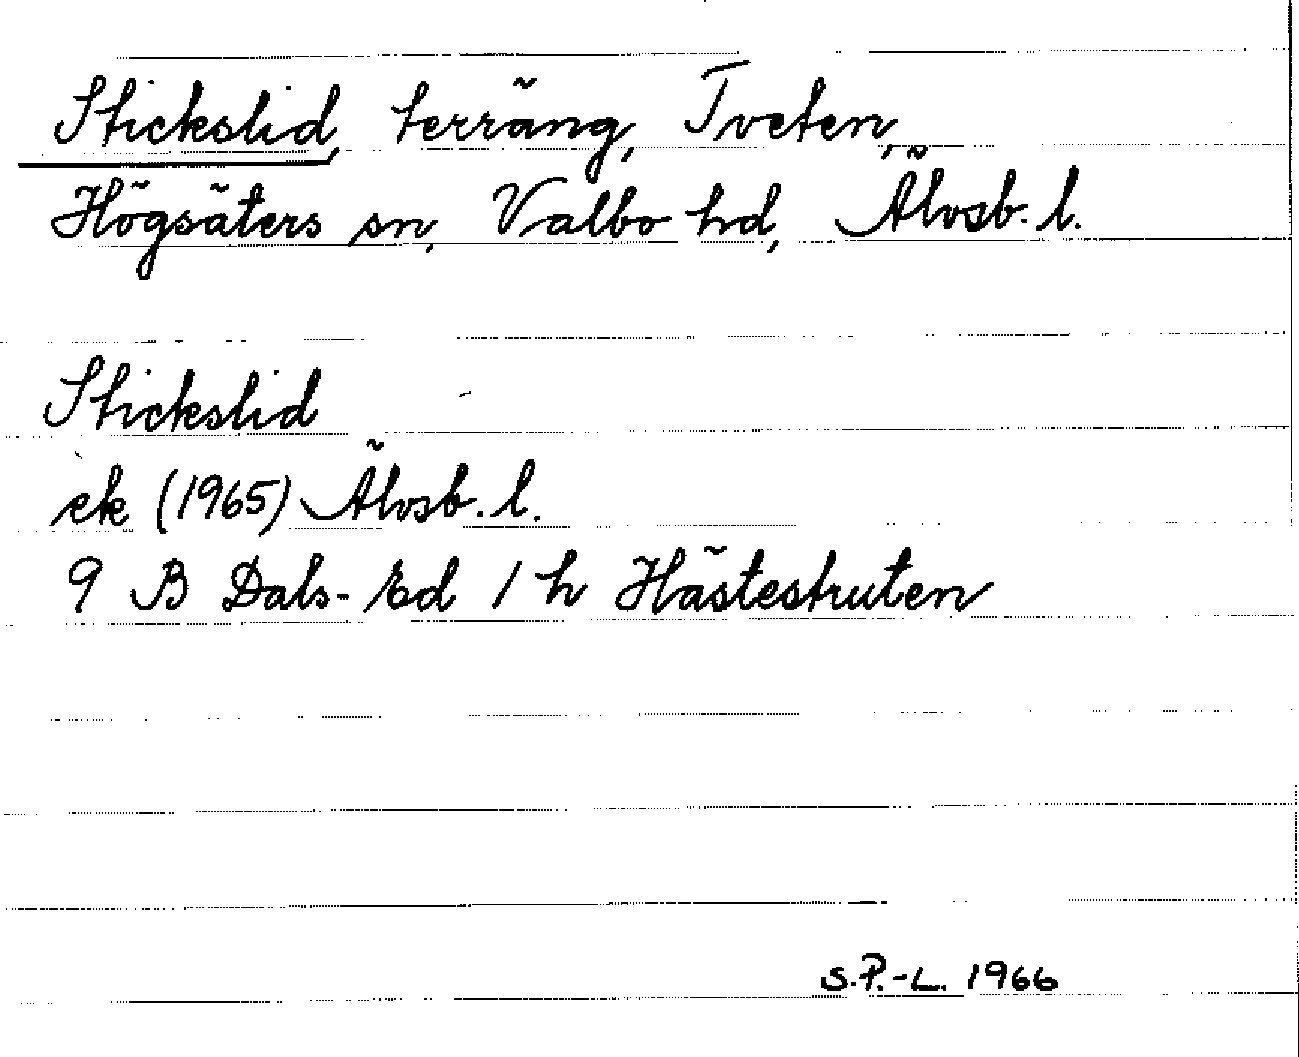 Stickslid, terräng, Tveten,
Högsäters sn, Valbo hd, Älvsb. l.
Stickslid
ek (1965) Älvsb. l.
9 B Dals-Ed 1 h Hästestruten
S.P.-L. 1966